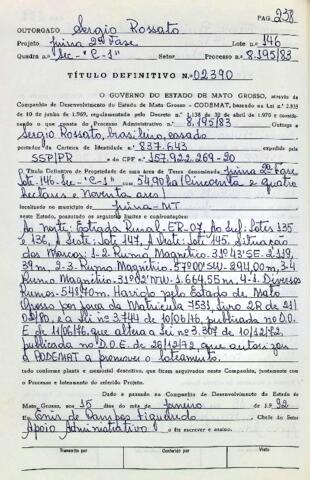 PAG. 238
OUTORGADO Sergio Rossato
Projeto Juina 2ª Fase Lote n.º 146
Quadra n.º Sec-"C-1" Setor Processo n.º 8.195/83
TÍTULO DEFINITIVO N.º 02390
O GOVERNO DO ESTADO DE MATO GROSSO, através da
Companhia de Desenvolvimento do Estado de Mato Grosso - CODEMAT, baseado na Lei n.º 2.835
de 10 de junho de 1969, regulamentada pelo Decreto n.º 1.138 de 30 de abril de 1970 e consideran-
do o que consta do Processo Administrativo n.º 8.195/83 Outorga a
Sergio Rossato, brasileiro, casado
portador da Carteira de Identidade n.º 837.643 expedida pela
SSP/PR e do CPF n.º 157.922.269-20
O Título Definitivo de Propriedade de uma área de Terras denominada Juina 2ª Fase
Lote-146-Sec-"C"-1" com 54,90ha (Cincoenta e quatro
hectares e noventa ares)
localizada no município de Juina-MT
neste Estado, possuindo os seguintes limites e confrontações:
Ao norte: Estrada Rural-ER-07, Ao sul: Lotes 135
e 136, A Leste: Lote 147, A Oeste: Lote 145. Situação
dos Marcos: 1-2 Rumo Magnético-31º43'SE-2.119,
39m, 2-3-Rumo Magnético-57º00'SW-294,00m, 3-4
Rumo Magnético-31º02'NW-1.664,55m, 4-1-Diversos
Rumos-548,70m. Havido pelo Estado de Mato
Grosso por força da Matricula 7531, Livro 2R de 21/
02/80 e a Lei nº 3.744 de 10/06/76, publicada no D.O.
E de 11/06/76, que altera a Lei nº 3.307 de 10/12/72,
publicada no D.O.E. de 26/12/72, que autoriza
a CODEMAT a promover o loteamento.
tudo conforme planta e memorial descritivo, que ficam arquivados nesta Companhia, juntamente com
o Processo e loteamento do referido Projeto.
Dado e passado na Companhia de Desenvolvimento do Estado de
Mato Grosso, aos 15 dias do mês de Janeiro de 19 92
Eu Enir de Campos Figueredo Chefe do Setor
Apoio Administrativo o fiz escrever e assino.
Transcrito por Conferido por Visto